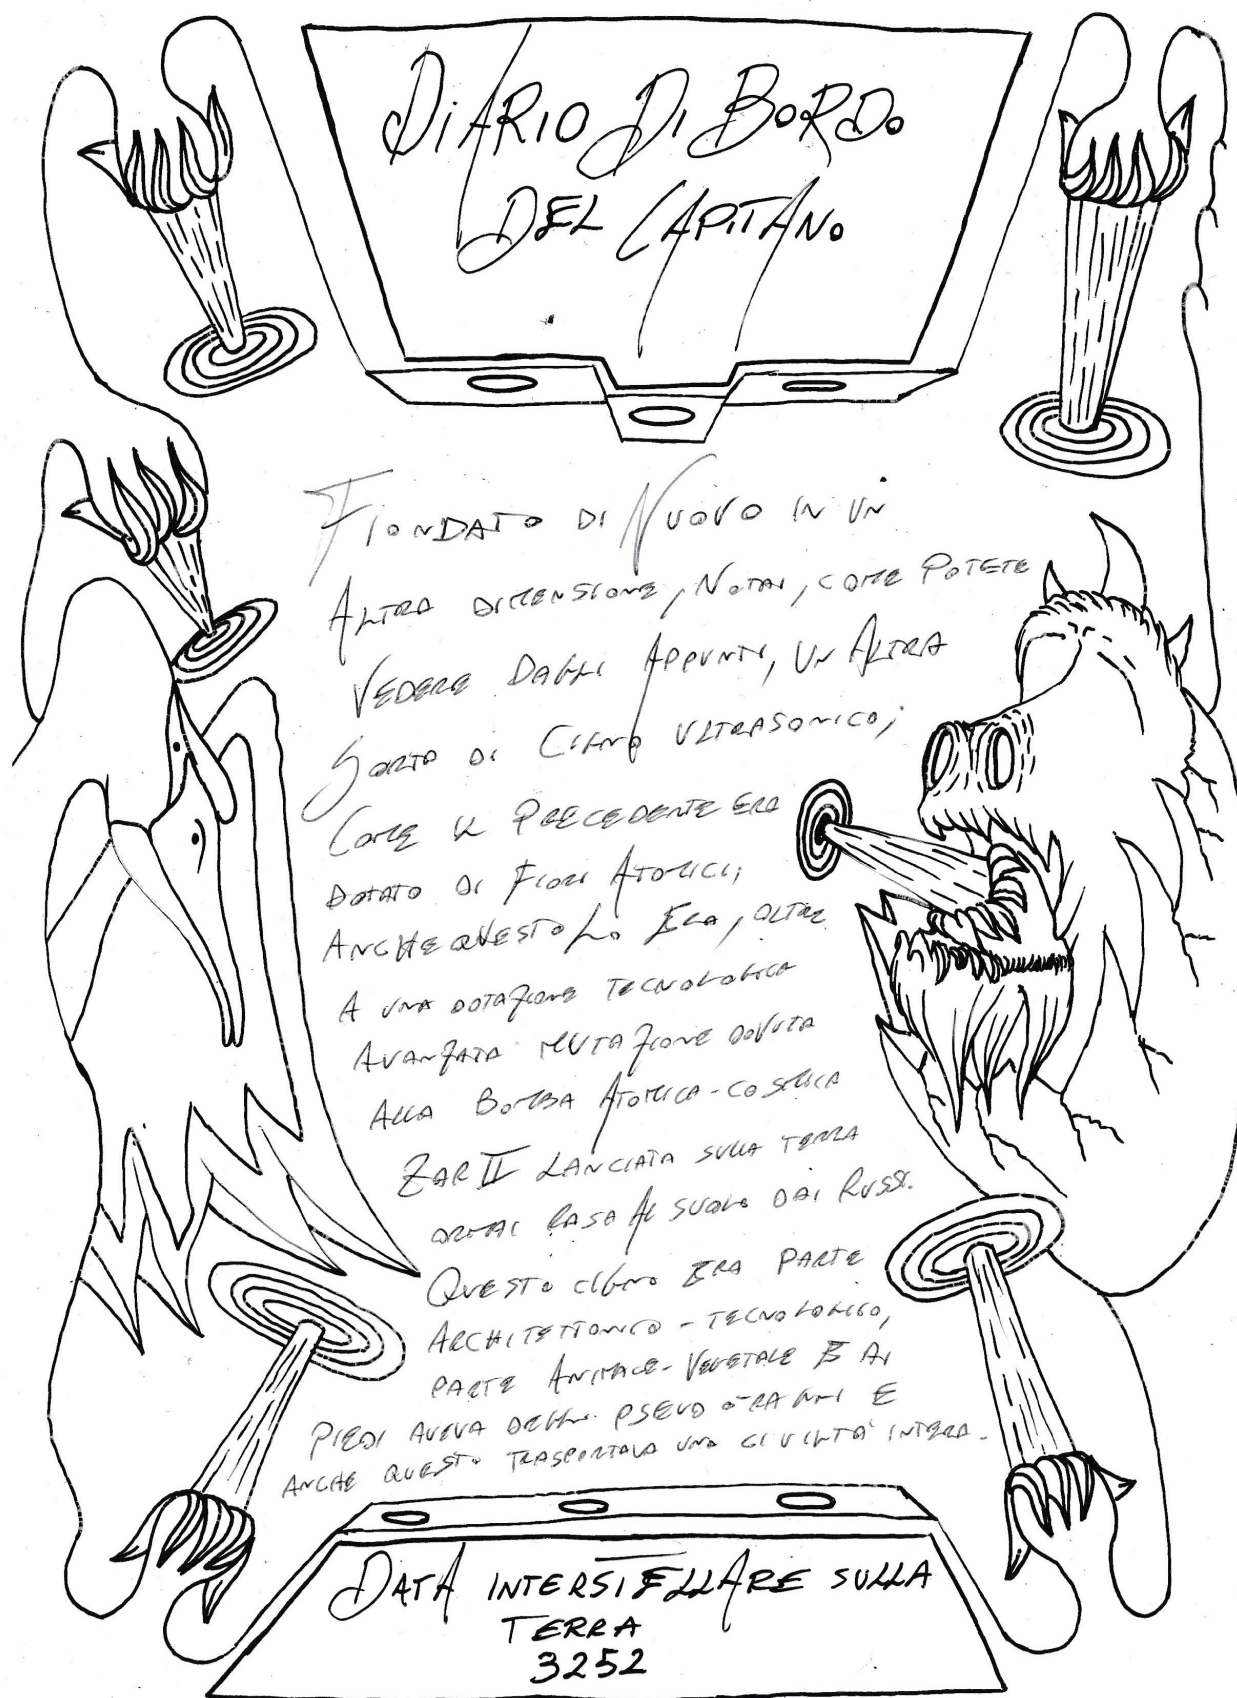 DIARIO DI BORDO
DEL CAPITANO
FIONDATO DI NUOVO IN UN
ALTRA DIMENSIONE, NOTAI, COME POTETE
VEDERE DAGLI APPUNTI, UN ALTRA
SORTA DI CIGNO ULTRASONICO;
COME IL PRECEDENTE ERA
DOTATO DI FIORI ATOMICI;
ANCHE QUESTO LO ERA, OLTRE
A UNA DOTAZIONE TECNOLOGICA
AVANZATA MUTAZIONE DOVUTA
ALLA BOMBA ATOMICA-COSMICA
ZAR II LANCIATA SULLA TERRA
ORMAI RASA AL SUOLO DAI RUSSI.
QUESTO CIGNO ERA PARTE
ARCHITETTONICO-TECNOLOGICO,
PARTE ANIMALE-VEGETALE E AI
PIEDI AVEVA DEGLI PSEUDO E
ANCHE QUESTO TRASPORTAVA UNA CIVILTA' INTERA.
DATA INTERSTELLARE SULLA
TERRA
3252